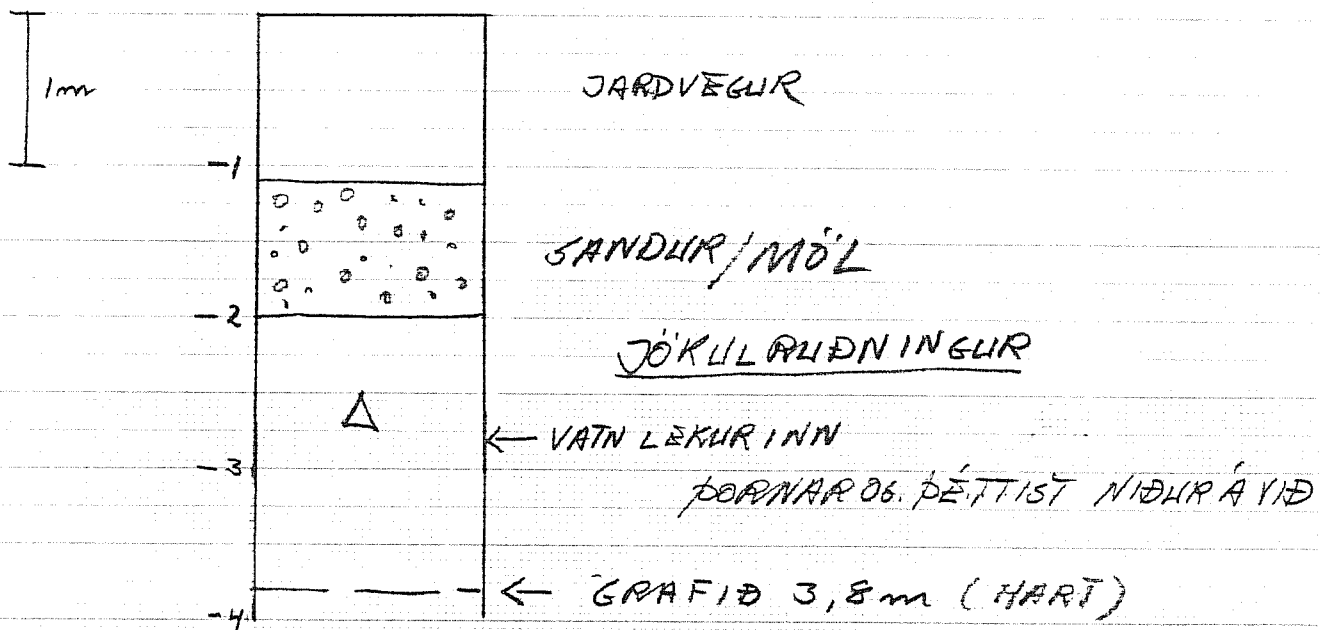 1m
JARDVEGUR
-1
SANDUR/MÖL
-2
JÖKULRUÐNINGUR
← VATN LEKUR INN
-3
ÞORNAR OG ÞÉTTIST NIÐUR Á VIÐ
← GRAFIÐ 3,8m (HART)
-4